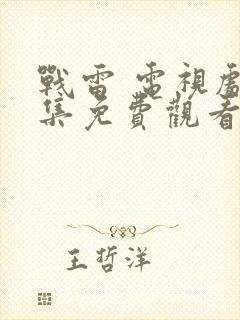 戰雷 電視處
集免費觀看
王哲洋